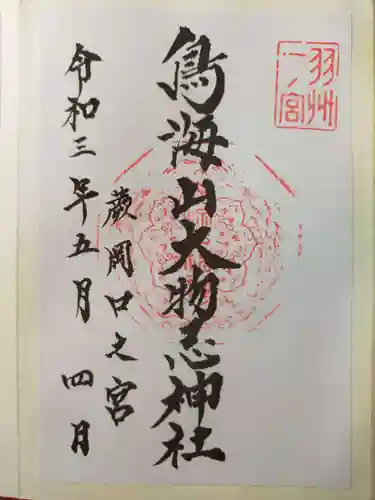 羽州
一ノ宮
鳥海山大物忌神社
蕨岡口之宮
令和三年五月四月